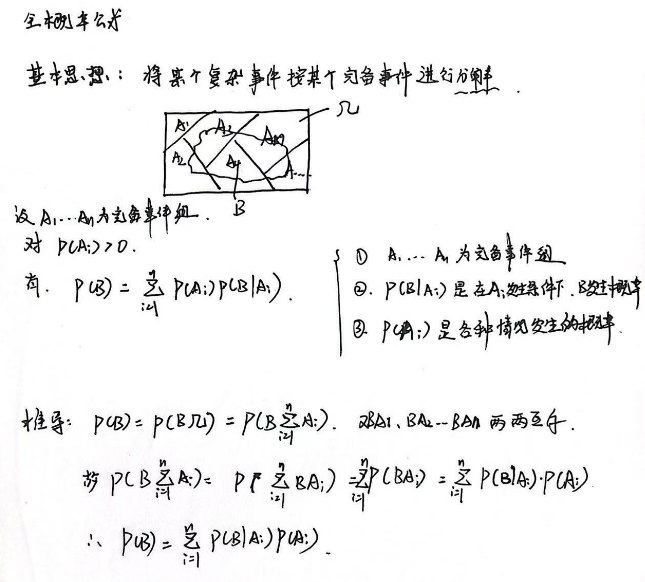 全概率公式
基本思想：将某个复杂事件按某个完备事件进行分解.
A1 A3 Am Ω
A2 A4 A...
B
设 A1...An为完备事件组.
对 P(Ai)>0.
有. P(B) = ∑ⁿᵢ₌₁ P(Ai)P(B|Ai).
① A1...An 为完备事件组
②. P(B|Ai) 是在Ai发生条件下. B发生概率
③. P(Ai) 是各种情况发生的概率.
推导: P(B)= P(BΩ) = P(B∑ⁿᵢ₌₁Ai). 又BA1、BA2...BAn 两两互斥.
故 P(B∑ⁿᵢ₌₁Ai)= P(∑ⁿᵢ₌₁BAi) =∑ⁿᵢ₌₁P(BAi) = ∑ⁿᵢ₌₁ P(B|Ai)·P(Ai)
∴ P(B) = ∑ⁿᵢ₌₁ P(B|Ai)P(Ai).